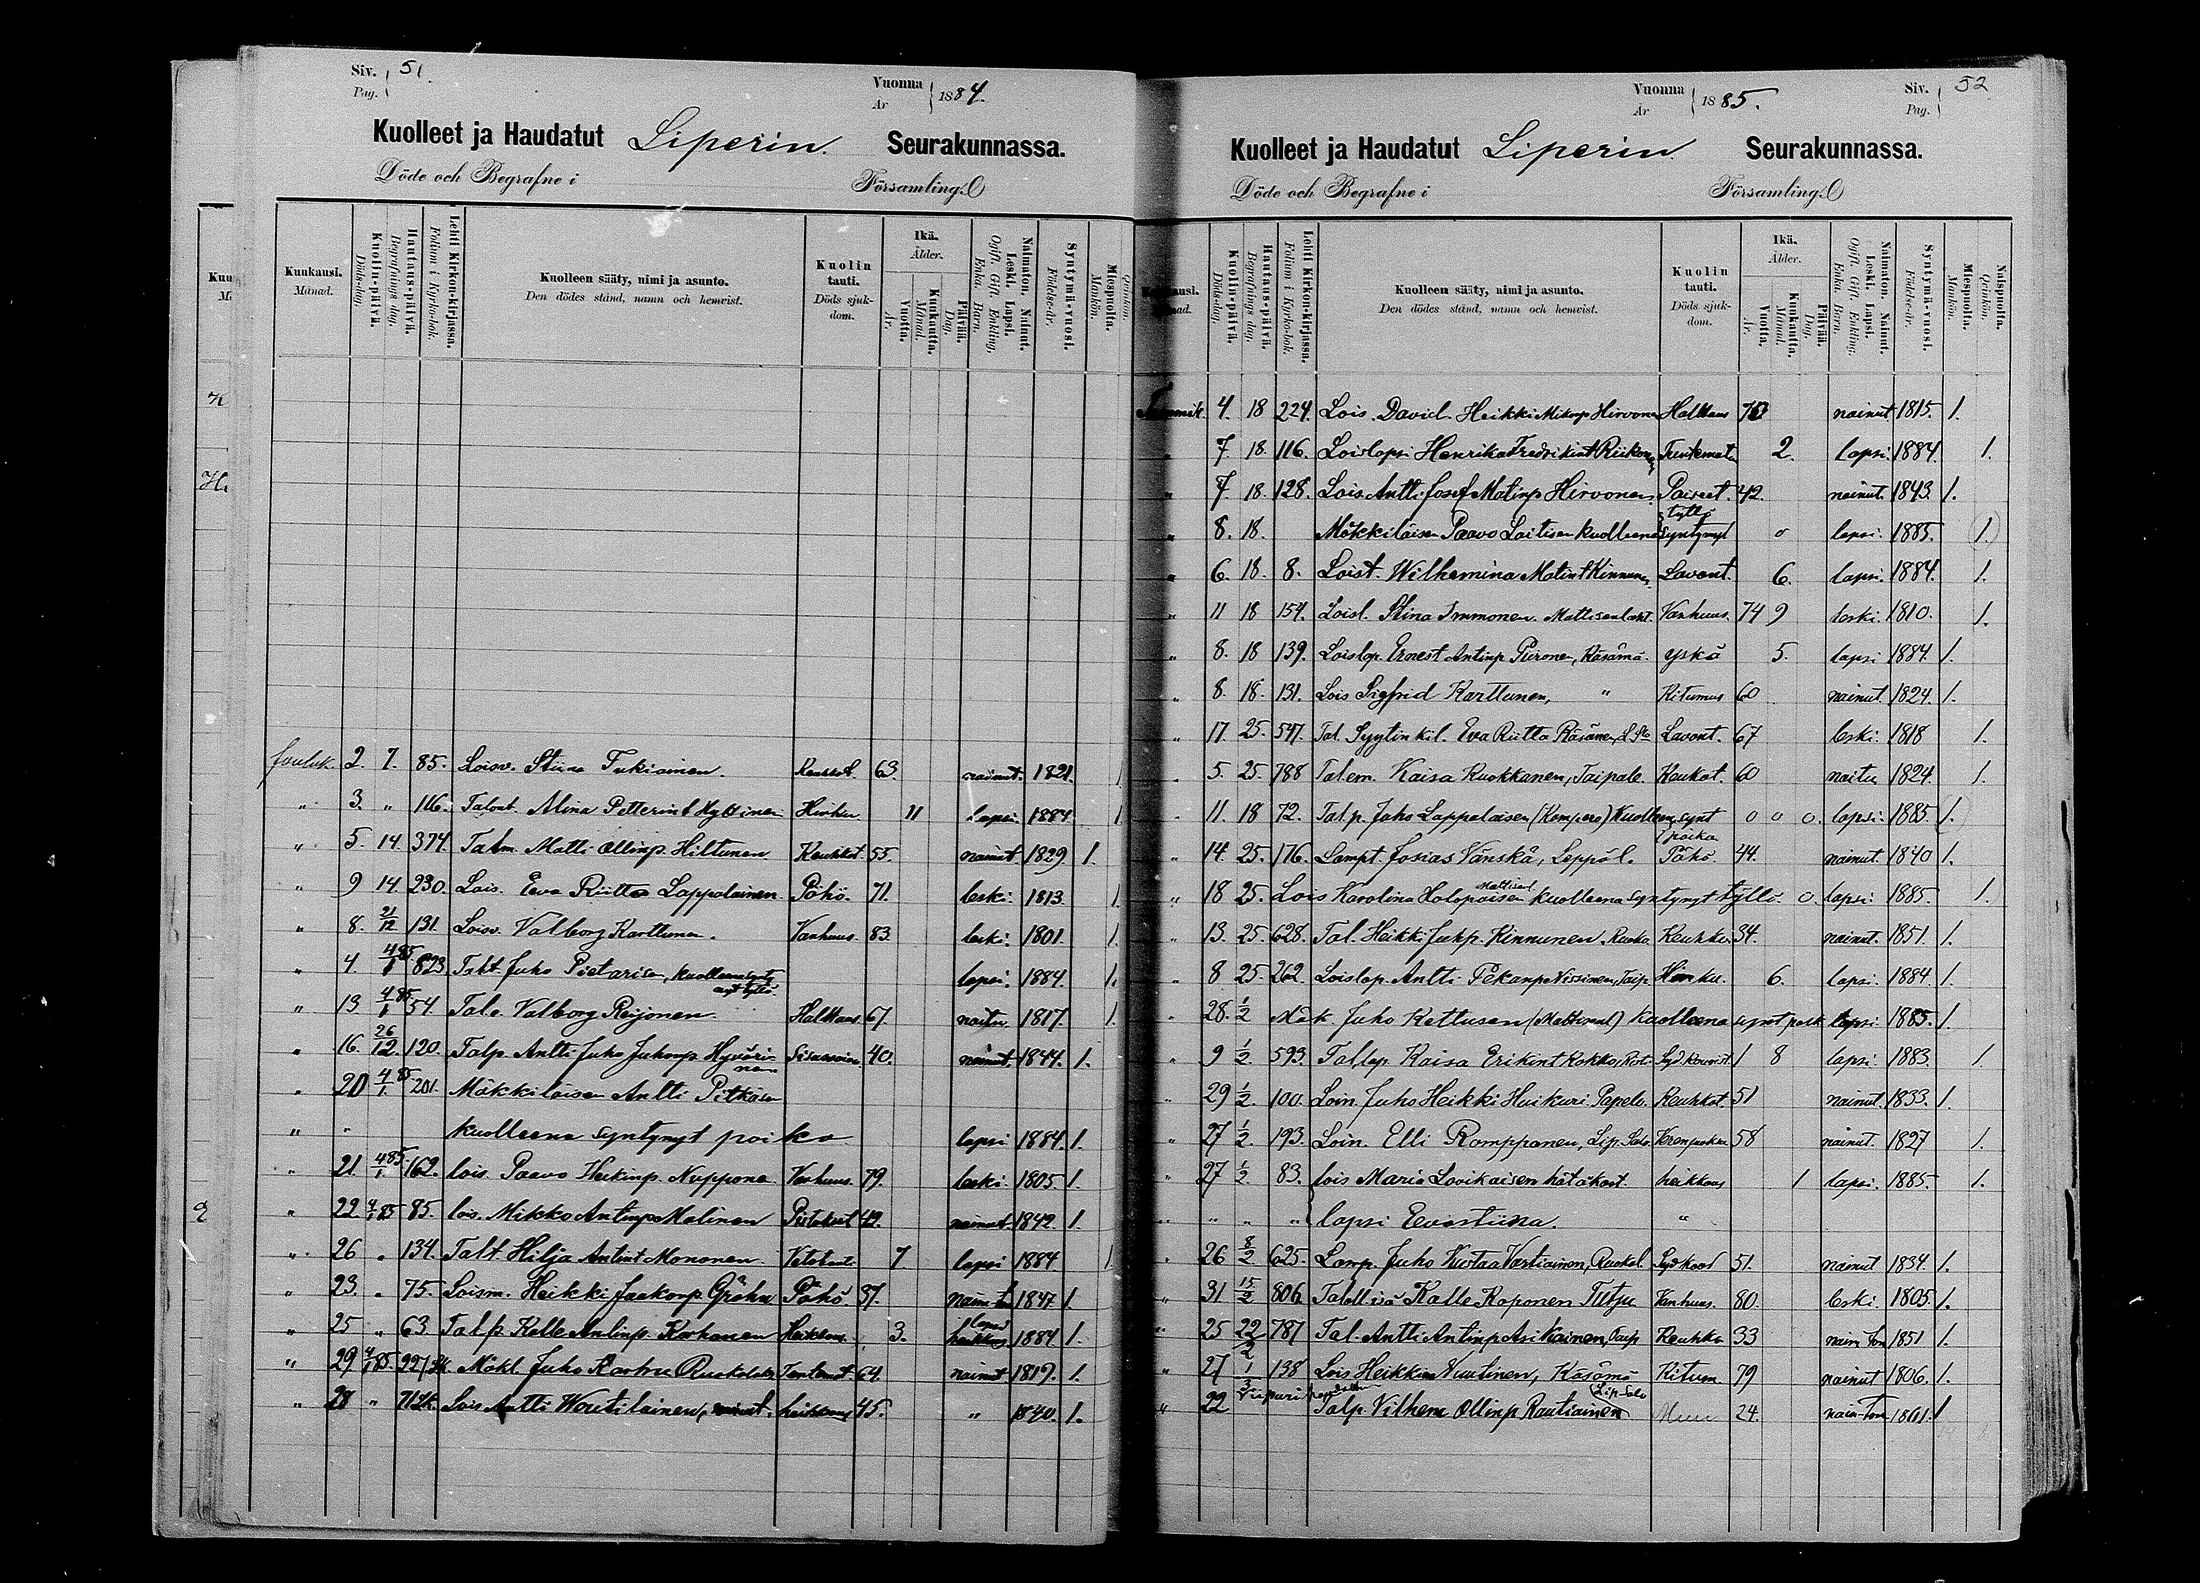 Siv. Pag. 51.
Vuonna År 1884.
Kuolleet ja Haudatut Liperin Seurakunnassa.
Döde och Begrafne i Församling.
Kuukausi. Månad.
Kuolin-päivä. Döds-dag.
Hautaus-päivä. Begrafnings dag.
Lehti Kirkon-kirjassa. Folium i Kyrko-bok.
Kuolleen sääty, nimi ja asunto. Den dödes stånd, namn och hemvist.
Kuolin tauti. Döds sjuk-dom.
Ikä. Ålder.
Vuotta. År.
Kuukautta. Månad.
Päivää. Dag.
Naimaton. Nainut. Leski. Lapsi. Ogift. Gift. Enkling, Enka. Barn.
Syntymä-vuosi. Födelse-år.
Miespuolta. Mankön.
Qvinkön.
Jouluk. 2. 7. 85. Loisv. Stiina Tukiainen. Keuhkot. 63. nainut. 1821.
" 3. " 116. Talont. Alina Petterint Hyttinen Hinku 11 lapsi. 1884
" 5. 14. 374. Talm. Matti Ollinp. Hiltunen Keuhkot 55. nainut 1829. 1.
" 9 14. 230. Lois. Eeva Riitta Lappalainen Pöhö. 71. leski. 1813. 1.
" 8. 21/12 131. Loisv. Valborg Karttunen. Vanhuus. 83. leski. 1801. 1.
" 4. 4/1 85 823 Talt. Juho Pietarisen, kuolleena synty
nyt tyttö. lapsi. 1884. 1.
" 13 4/1 85 54. Tale. Valborg Reijonen. Halkaus. 67. naitu 1817. 1.
" 16. 26/12 120. Talp. Antti Juho Juhonp. Hyvöri-
nen 40. nainut. 1844. 1.
" 20 4/1 85 201. Mökkiläisen Antti Pitkäsen
" " kuolleena syntynyt poika lapsi 1884. 1.
" 21. 4/1 85. 162. lois. Paavo Heikinp. Nupponen Vanhuus. 79. leski. 1805. 1.
" 22. 4/1 85 85. lois. Mikko Antinp. Malinen Pistokset 42. nainut. 1842. 1.
" 26 " 134. Talt. Hilja Antint Mononen. 7 lapsi 1884 1
" 23. " 75. Loism. Heikki Jaakonp. Gröhn Pöhö. 37. naim-ton 1847 1.
" 25 " 63 Talp. Kalle Antinp. Karhanen Heikkous. 3. lapsi 1884 1.
" 29 4/1 85. Mökl. Juho Karhu Tuntemat 64. nainut 1819. 1.
" 28 " Lois Antti Woutilainen, heikkous 45. " 1840. 1.
Siv. Pag. 52
Vuonna År 1885.
Kuolleet ja Haudatut Liperin Seurakunnassa.
Döde och Begrafne i Församling.
Kuolin-päivä. Döds-dag.
Hautaus-päivä. Begrafnings dag.
Lehti Kirkon-kirjassa. Folium i Kyrko-bok.
Kuolleen sääty, nimi ja asunto. Den dödes stånd, namn och hemvist.
Kuolin tauti. Döds sjuk-dom.
Ikä. Ålder.
Vuotta. År.
Kuukautta. Månad.
Päivää. Dag.
Naimaton. Nainut. Leski. Lapsi. Ogift. Gift. Enkling, Enka. Barn.
Syntymä-vuosi. Födelse-år.
Miespuolta. Mankön.
Naispuolta. Qvinkön.
Tammik. 4. 18 224. Lois. David Heikki Mikonp Hirvonen Halkaus 70 nainut 1815. 1.
" 7. 18. 116. Loislapsi Henrika Fredrikint Riikonen Tuntematon 2. lapsi. 1884. 1.
" 7. 18. 128. Lois. Antti Josef Matinp Hirvonen Paiseet. 42. nainut. 1843. 1.
" 8. 18. Mökkiläisen Paavo Laitisen kuolleena syntynyt tyttö 0 lapsi. 1885. 1.
" 6. 18. 8. Loist. Wilhemina Matint Kinnunen Lavant. 6. lapsi. 1884. 1.
" 11 18 154. Loisl. Stina Immonen. Mattisenlaht. Vanhuus. 74 9 leski. 1810. 1.
" 8. 18 139. Loislap. Ernest Antinp Piironen, Käsämä. yskä 5. lapsi 1884. 1.
" 8. 18. 131. Lois Sigfrid Karttunen, " Kitumus 60 nainut 1824. 1.
" 17. 25. 547. Tal. Syytinkil. Eva Riitta Räsänen, Lavant. 67 leski. 1818 1.
" 5. 25. 788 Talem. Kaisa Kuokkanen, Taipale. Keuhkot. 60 naitu 1824. 1.
" 11. 18 72. Talp. Juho Lappalaisen (Kompero) Kuolleena synt poika 0 0 0. lapsi. 1885. 1.
" 14. 25. 176. Lampt. Josias Vänskä, Leppäl. Pöhö 44. nainut. 1840 1.
" 18 25. Lois Karolina Holopaisen Mattisenl kuolleena syntynyt tyttö. 0. lapsi. 1885. 1.
" 13. 25. 628. Tal. Heikki Juhp. Kinnunen, Keuhko. 34. nainut. 1851. 1.
" 8 25. 262 Loislap. Antti Pekanp Nissinen, Taip. Hinku. 6. lapsi. 1884 1.
" 28. 1/2 Mök. Juho Kettusen (Mattisenl) kuolleena synt poik. lapsi 1885. 1.
" 9 1/2 593. Tallap. Kaisa Erikint Kokko, 1 8 lapsi 1883. 1.
" 29 1/2. 100. Loin. Juho Heikki Huikuri Papelo. Keuhkot. 51 nainut. 1833. 1.
" 27 1/2. 193. Loin. Elli Romppanen, Lip. Salo. 58 nainut. 1827 1.
" 27 1/2. 83. lois Maria Lovikaisen hätäkast. heikkous 1 lapsi. 1885. 1.
" " " " lapsi Eevastiina. "
" 26 8/2 625. Lamp. Juho Kustaa Vartiainen, Ruokol. 51. nainut 1834 1.
" 31 15/2 806 Talollisisä Kalle Koponen Tutju Vanhuus. 80. leski. 1805. 1.
" 25 22/2 787 Tal. Antti Antinp Asikainen, Taip Keuhko 33 naim ton 1851 1.
" 27 1/3 138 Lois Heikki Vuutinen, Käsämä Kitum 79 nainut 1806. 1.
" 22 Viapuri Talp. Vilhem Ollinp Rautiainen Lip. Salo 24. naim-ton 1861. 1